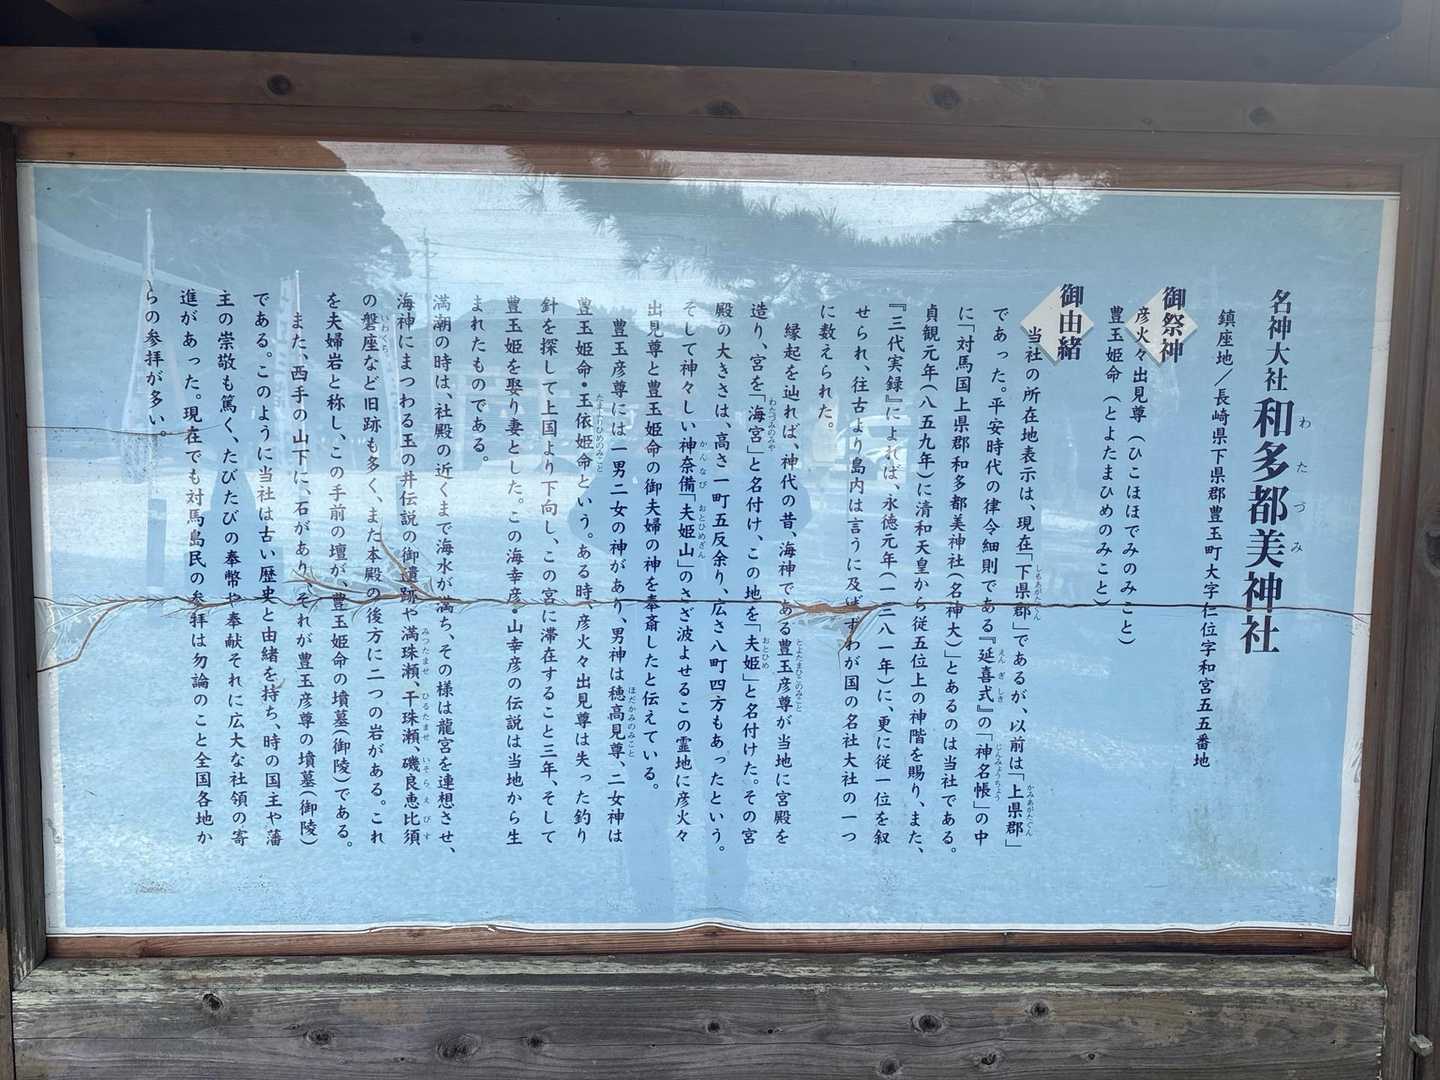 名神大社 和多都美神社
わたづみ
鎮座地／長崎県下県郡豊玉町大字仁位字和宮五五番地
御祭神
彦火々出見尊（ひこほほでみのみこと）
豊玉姫命（とよたまひめのみこと）
御由緒
当社の所在地表示は、現在「下県郡」であるが、以前は「上県郡」
しもあがたぐん
かみあがたぐん
であった。平安時代の律令細則である『延喜式』の「神名帳」の中
えんぎしき
じんみょうちょう
に「対馬国上県郡和多都美神社（名神大）」とあるのは当社である。
貞観元年（八五九年）に清和天皇から従五位上の神階を賜り、また、
『三代実録』によれば、永徳元年（一三八一年）に、更に従一位を叙
せられ、往古より島内は言うに及ばずわが国の名社大社の一つ
に数えられた。
縁起を辿れば、神代の昔、海神である豊玉彦尊が当地に宮殿を
とよたまひこのみこと
造り、宮を「海宮」と名付け、この地を「夫姫」と名付けた。その宮
わたづみのみや
おとひめ
殿の大きさは、高さ一町五反余り、広さ八町四方もあったという。
そして神々しい神奈備「夫姫山」のさざ波よせるこの霊地に彦火々
かんなび
おとひめざん
出見尊と豊玉姫命の御夫婦の神を奉斎したと伝えている。
豊玉彦尊には一男二女の神があり、男神は穂高見尊、二女神は
ほだかみのみこと
豊玉姫命・玉依姫命という。ある時、彦火々出見尊は失った釣り
たまよりひめのみこと
針を探して上国より下向し、この宮に滞在すること三年、そして
豊玉姫を娶り妻とした。この海幸彦・山幸彦の伝説は当地から生
まれたものである。
満潮の時は、社殿の近くまで海水が満ち、その様は龍宮を連想させ、
海神にまつわる玉の井伝説の御遺跡や満珠瀬、干珠瀬、磯良恵比須
みつたませ
ひるたませ
いそらえびす
の磐座など旧跡も多く、また本殿の後方に二つの岩がある。これ
いわくら
を夫婦岩と称し、この手前の壇が、豊玉姫命の墳墓（御陵）である。
また、西手の山下に、石があり、それが豊玉彦尊の墳墓（御陵）
である。このように当社は古い歴史と由緒を持ち、時の国主や藩
主の崇敬も篤く、たびたびの奉幣や奉献それに広大な社領の寄
進があった。現在でも対馬島民の参拝は勿論のこと全国各地か
らの参拝が多い。